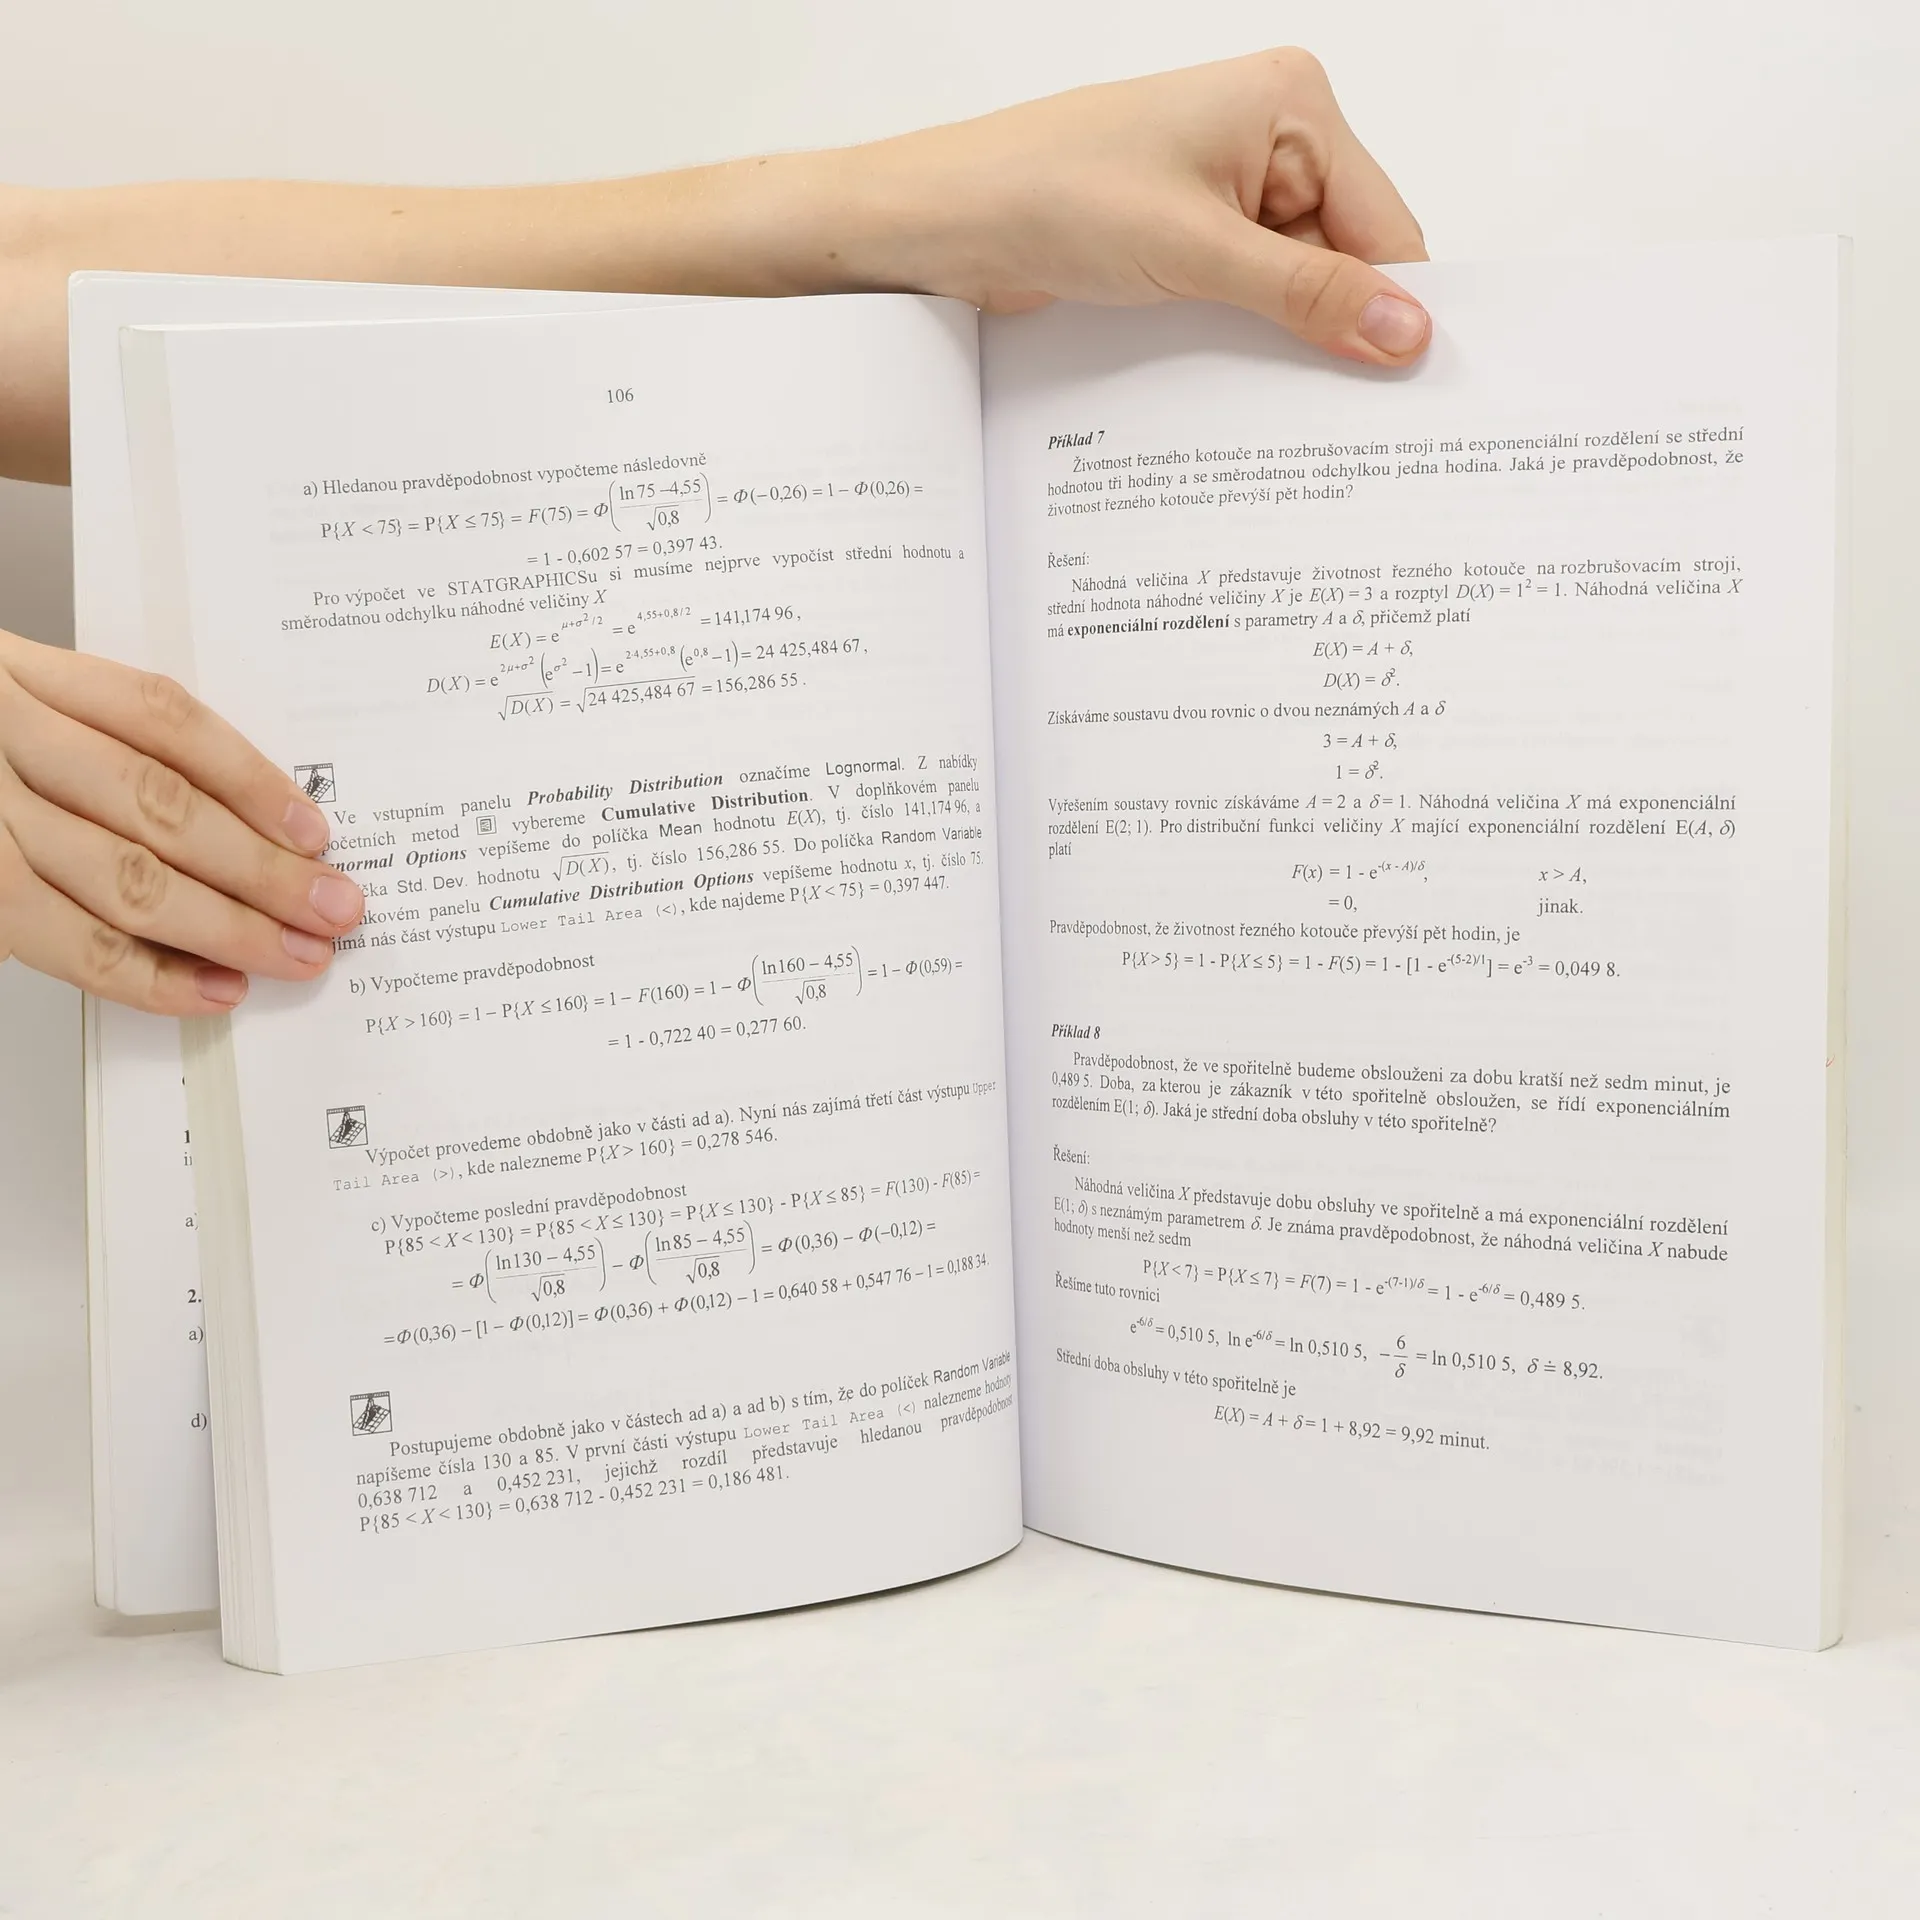 106
a) Hledanou pravděpodobnost vypočteme následovně
P{X < 75} = P{X ≤ 75} = F(75) = Φ((ln 75 – 4,55)/√0,8) = Φ(–0,26) = 1 – Φ(0,26) =
= 1 - 0,602 57 = 0,397 43.
Pro výpočet ve STATGRAPHICSu si musíme nejprve vypočíst střední hodnotu a
směrodatnou odchylku náhodné veličiny X
E(X) = e^(μ+σ²/2) = e^(4,55+0,8/2) = 141,174 96,
D(X) = e^(2μ+σ²)(e^(σ²) – 1) = e^(2·4,55+0,8)(e^(0,8) – 1) = 24 425,484 67,
√D(X) = √24 425,484 67 = 156,286 55.
Ve vstupním panelu Probability Distribution označíme Lognormal. Z nabídky
početních metod vybereme Cumulative Distribution. V doplňkovém panelu
normal Options vepíšeme do políčka Mean hodnotu E(X), tj. číslo 141,174 96, a
čka Std. Dev. hodnotu √D(X), tj. číslo 156,286 55. Do políčka Random Variable
kovém panelu Cumulative Distribution Options vepíšeme hodnotu x, tj. číslo 75.
jímá nás část výstupu Lower Tail Area (<), kde najdeme P{X < 75} = 0,397 447.
b) Vypočteme pravděpodobnost
P{X > 160} = 1 – P{X ≤ 160} = 1 – F(160) = 1 – Φ((ln 160 – 4,55)/√0,8) = 1 – Φ(0,59) =
= 1 - 0,722 40 = 0,277 60.
Výpočet provedeme obdobně jako v části ad a). Nyní nás zajímá třetí část výstupu Upper
Tail Area (>), kde nalezneme P{X > 160} = 0,278 546.
c) Vypočteme poslední pravděpodobnost
P{85 < X < 130} = P{85 < X ≤ 130} = P{X ≤ 130} - P{X ≤ 85} = F(130) - F(85) =
= Φ((ln 130 – 4,55)/√0,8) – Φ((ln 85 – 4,55)/√0,8) = Φ(0,36) – Φ(–0,12) =
= Φ(0,36) – [1 – Φ(0,12)] = Φ(0,36) + Φ(0,12) – 1 = 0,640 58 + 0,547 76 – 1 = 0,188 34.
Postupujeme obdobně jako v částech ad a) a ad b) s tím, že do políček Random Variable
napíšeme čísla 130 a 85. V první části výstupu Lower Tail Area (<) nalezneme hodnoty
0,638 712 a 0,452 231, jejichž rozdíl představuje hledanou pravděpodobnost
P{85 < X < 130} = 0,638 712 - 0,452 231 = 0,186 481.
1
a)
2.
a)
d)
Příklad 7
Životnost řezného kotouče na rozbrušovacím stroji má exponenciální rozdělení se střední
hodnotou tři hodiny a se směrodatnou odchylkou jedna hodina. Jaká je pravděpodobnost, že
životnost řezného kotouče převýší pět hodin?
Řešení:
Náhodná veličina X představuje životnost řezného kotouče na rozbrušovacím stroji,
střední hodnota náhodné veličiny X je E(X) = 3 a rozptyl D(X) = 1² = 1. Náhodná veličina X
má exponenciální rozdělení s parametry A a δ, přičemž platí
E(X) = A + δ,
D(X) = δ².
Získáváme soustavu dvou rovnic o dvou neznámých A a δ
3 = A + δ,
1 = δ².
Vyřešením soustavy rovnic získáváme A = 2 a δ = 1. Náhodná veličina X má exponenciální
rozdělení E(2; 1). Pro distribuční funkci veličiny X mající exponenciální rozdělení E(A, δ)
platí
F(x) = 1 - e^(-(x - A)/δ), x > A,
= 0, jinak.
Pravděpodobnost, že životnost řezného kotouče převýší pět hodin, je
P{X > 5} = 1 - P{X ≤ 5} = 1 - F(5) = 1 - [1 - e^(-(5-2)/1)] = e^(-3) = 0,049 8.
Příklad 8
Pravděpodobnost, že ve spořitelně budeme obslouženi za dobu kratší než sedm minut, je
0,489 5. Doba, za kterou je zákazník v této spořitelně obsloužen, se řídí exponenciálním
rozdělením E(1; δ). Jaká je střední doba obsluhy v této spořitelně?
Řešení:
Náhodná veličina X představuje dobu obsluhy ve spořitelně a má exponenciální rozdělení
E(1; δ) s neznámým parametrem δ. Je známa pravděpodobnost, že náhodná veličina X nabude
hodnoty menší než sedm
P{X < 7} = P{X ≤ 7} = F(7) = 1 - e^(-(7-1)/δ) = 1 - e^(-6/δ) = 0,489 5.
Řešíme tuto rovnici
e^(-6/δ) = 0,510 5, ln e^(-6/δ) = ln 0,510 5, –6/δ = ln 0,510 5, δ ≐ 8,92.
Střední doba obsluhy v této spořitelně je
E(X) = A + δ = 1 + 8,92 = 9,92 minut.